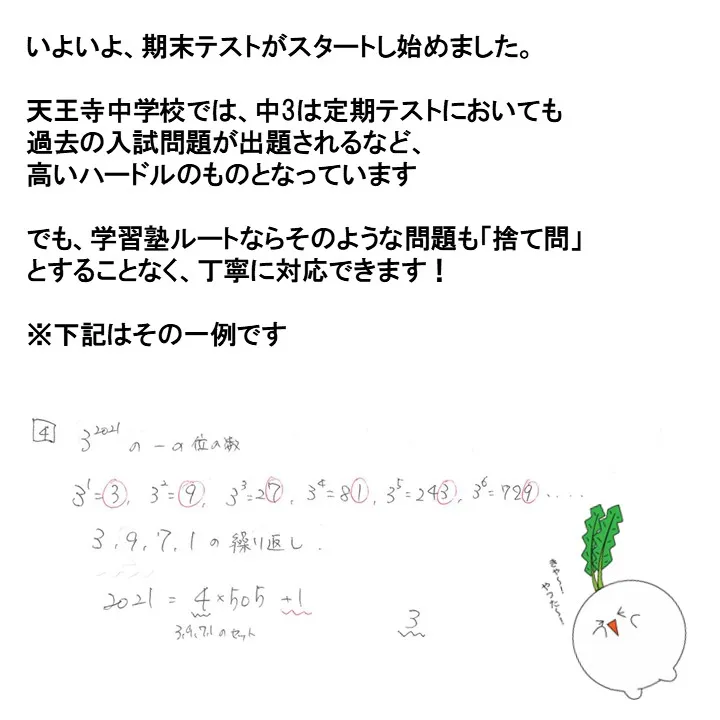 いよいよ、期末テストがスタートし始めました。
天王寺中学校では、中3は定期テストにおいても
過去の入試問題が出題されるなど、
高いハードルのものとなっています
でも、学習塾ルートならそのような問題も「捨て問」
とすることなく、丁寧に対応できます！
※下記はその一例です
4 3²⁰²¹ の一の位の数
3¹=3, 3²=9, 3³=27, 3⁴=81, 3⁵=243, 3⁶=729、....
3,9,7,1の繰り返し.
2021 = 4×505 +1
3,9,7,1のセット
3
きゃー!
やったー!